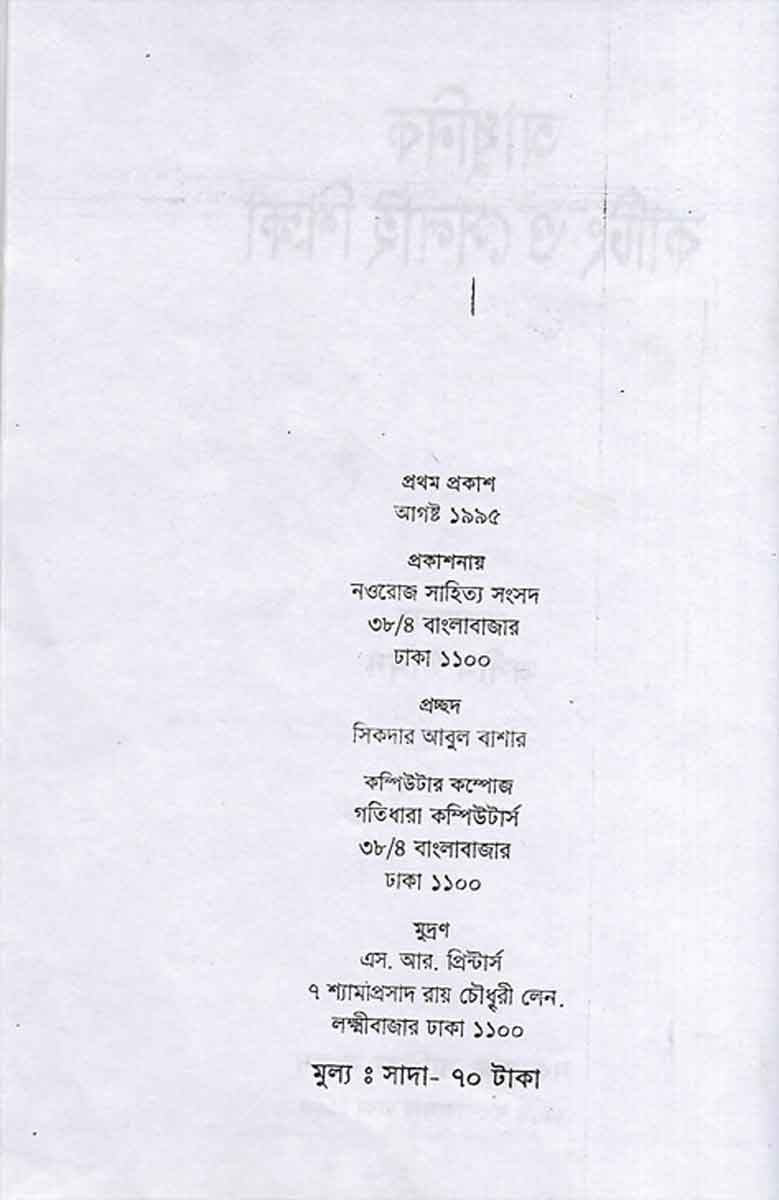 প্রথম প্রকাশ
আগষ্ট ১৯৯৫
প্রকাশনায়
নওরোজ সাহিত্য সংসদ
৩৮/৪ বাংলাবাজার
ঢাকা ১১০০
প্রচ্ছদ
সিকদার আবুল বাশার
কম্পিউটার কম্পোজ
গতিধারা কম্পিউটার্স
৩৮/৪ বাংলাবাজার
ঢাকা ১১০০
মুদ্রণ
এস. আর. প্রিন্টার্স
৭ শ্যামাপ্রসাদ রায় চৌধুরী লেন.
লক্ষ্মীবাজার ঢাকা ১১০০
মুল্য ঃ সাদা- ৭০ টাকা